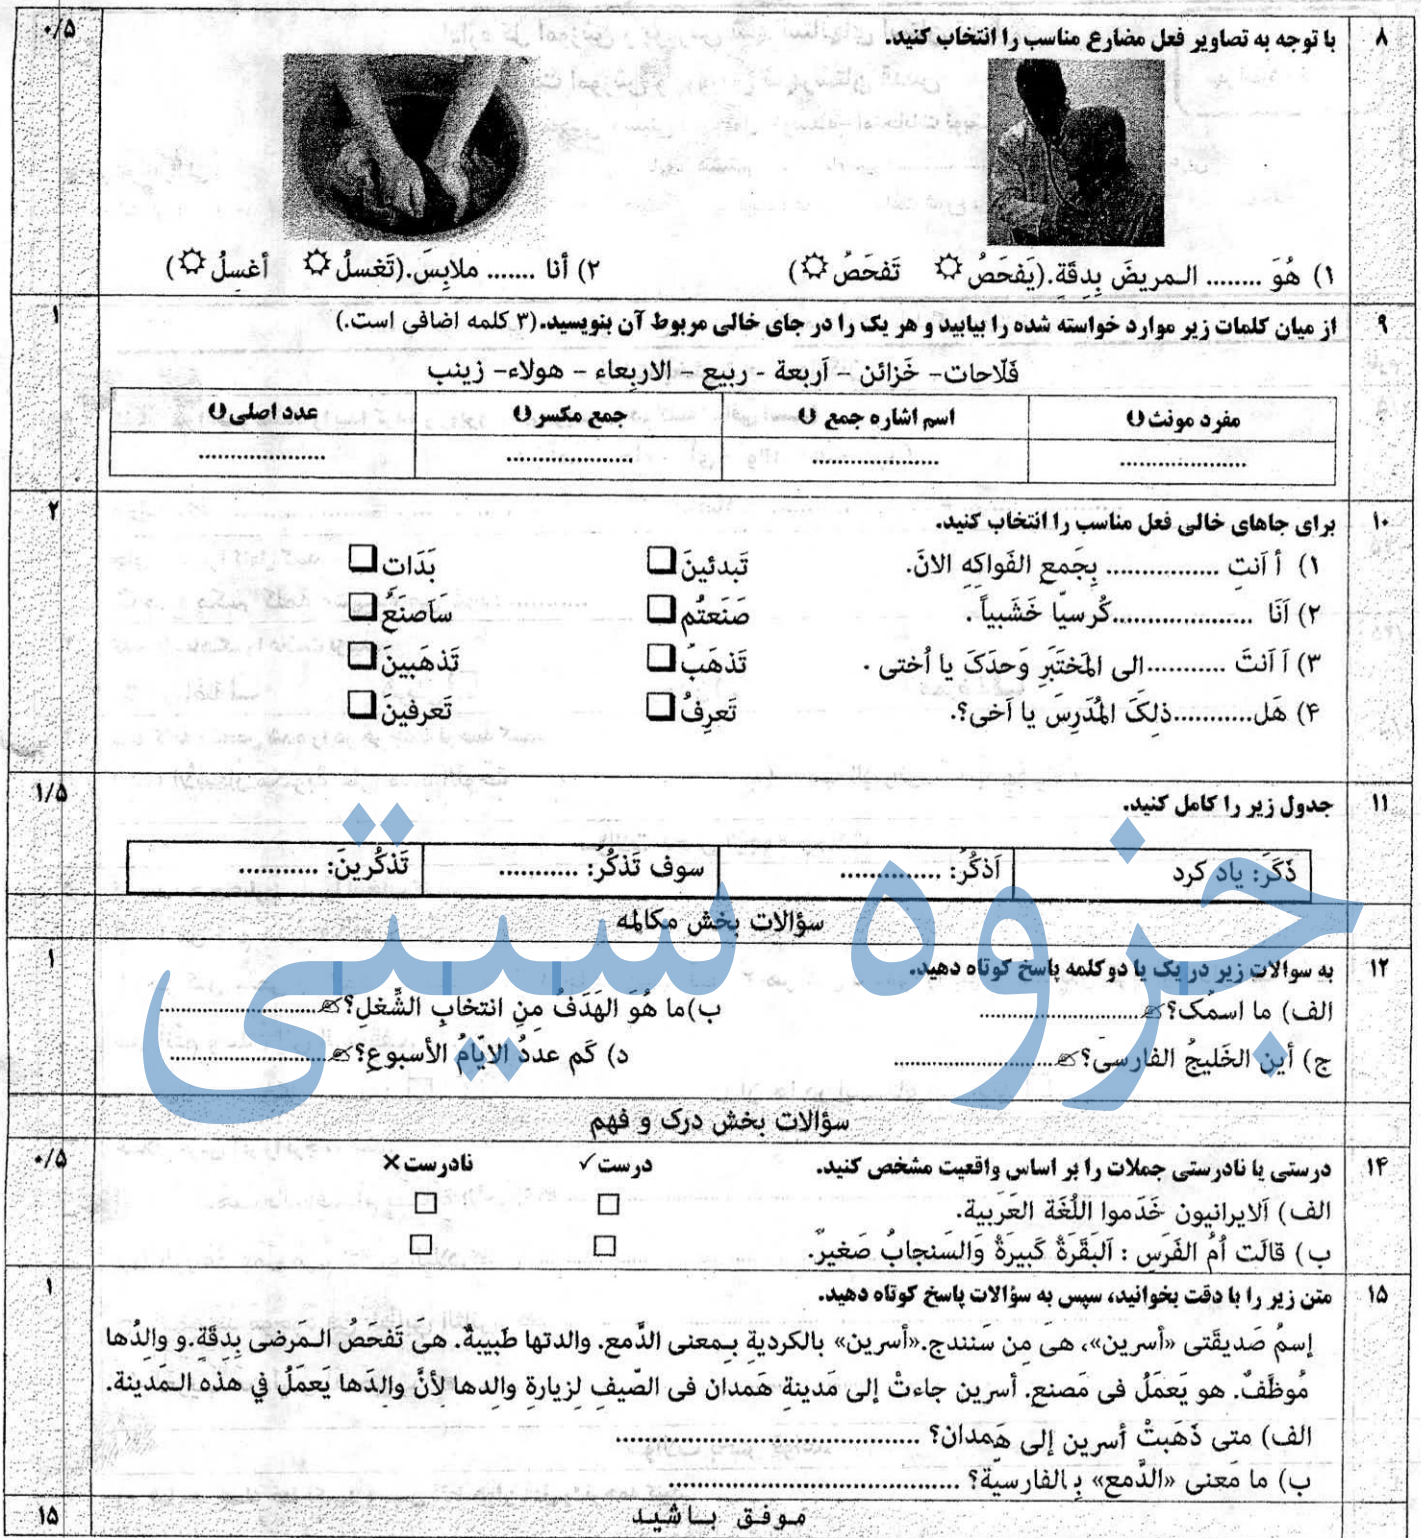 ۸ با توجه به تصاویر فعل مضارع مناسب را انتخاب کنید. ۰/۵
۱) هُوَ ........ الـمریضَ بِدِقَةٍ.(یَفحَصُ تَفحَصُ) ۲) أنا ....... ملابِسَ.(تَغسلُ أغسِلُ)
۹ از میان کلمات زیر موارد خواسته شده را بیابید و هر یک را در جای خالی مربوط آن بنویسید.(۳ کلمه اضافی است.) ۱
فَلّاحات- خَزائن - آربعة - ربیع - الاربعاء - هولاء- زینب
مفرد مونث اسم اشاره جمع جمع مکسر عدد اصلی
.................... .................... .................... ....................
۱۰ برای جاهای خالی فعل مناسب را انتخاب کنید. ۲
۱) أ آنتِ ................ بِجَمعِ الفَواکِهِ الانَ. تَبدئینَ بَدَات
۲) آنَا ....................کُرسیّا خَشَبیاً . صَنَعتُم سَاَصنَعُ
۳) اَ آنتَ ...........الی المَختَبَرِ وَحدَکَ یا اُختی . تَذهَبُ تَذهَبینَ
۴) هَل...........ذلِکَ المُدَرِسَ یا آخی؟. تَعرِفُ تَعرفینَ
۱۱ جدول زیر را کامل کنید. ۱/۵
ذَکَرَ: یاد کرد اَذکُرُ: .............. سوف تَذکُرُ: ........... تَذکُرینَ: ...........
سؤالات بخش مکالمه
۱۲ به سوالات زیر در یک یا دو کلمه پاسخ کوتاه دهید. ۱
الف) ما اسمُک؟........................... ب)ما هُوَ الهَدَفُ مِنِ انتخابِ الشِّغلِ؟...........................
ج) أین الخَلیجُ الفارسیَ؟........................... د) کَم عددُ الایّامُ الأسبوعِ؟...........................
سؤالات بخش درک و فهم
۱۴ درستی یا نادرستی جملات را بر اساس واقعیت مشخص کنید. درست✓ نادرست× ۰/۵
الف) آلایرانیون خَدَموا اللُغَة العَرَبیة.
ب) قالَت اُمُ الفَرَسِ : اَلبَقَرَةُ کَبیرَةٌ وَالسَنجابُ صَغیرٌ.
۱۵ متن زیر را با دقت بخوانید، سپس به سؤالات پاسخ کوتاه دهید. ۱
إسمُ صَدیقَتی «أسرین»، هی مِن سَنندج.«أسرین» بالکردیةِ بـمعنی الدَّمع. والدتها طَبیبةٌ. هیَ تَفحَصُ الـمَرضی بِدِقةٍ.و والِدُها
مُوظَّفٌ. هو یَعمَلُ فی مَصنعٍ. أسرین جاءتْ إلی مَدینةِ هَمدان فی الصّیفِ لِزیارةِ والِدها لِأنَّ والِدَها یَعمَلُ في هذه الـمَدینة.
الف) متی ذَهَبتْ أسرین إلی هَمدان؟ ........................................
ب) ما مَعنی «الدَّمع» بِـالفارسیّة؟ ........................................
موفق باشید ۱۵
جزوه سیتی